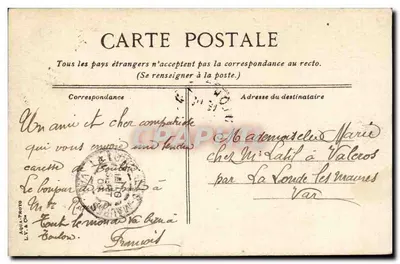 CARTE POSTALE
Tous les pays étrangers n'acceptent pas la correspondance au recto.
(Se renseigner à la poste.)
Correspondance
Adresse du destinataire
Un ami et cher compatriote
qui vous envoie une tendre
caresse de Toulon
Le bonjour
Tout le monde va bien à
Toulon.
François
Mademoiselle Marie
chez Mr à Valcros
par La Londe les Maures
Var